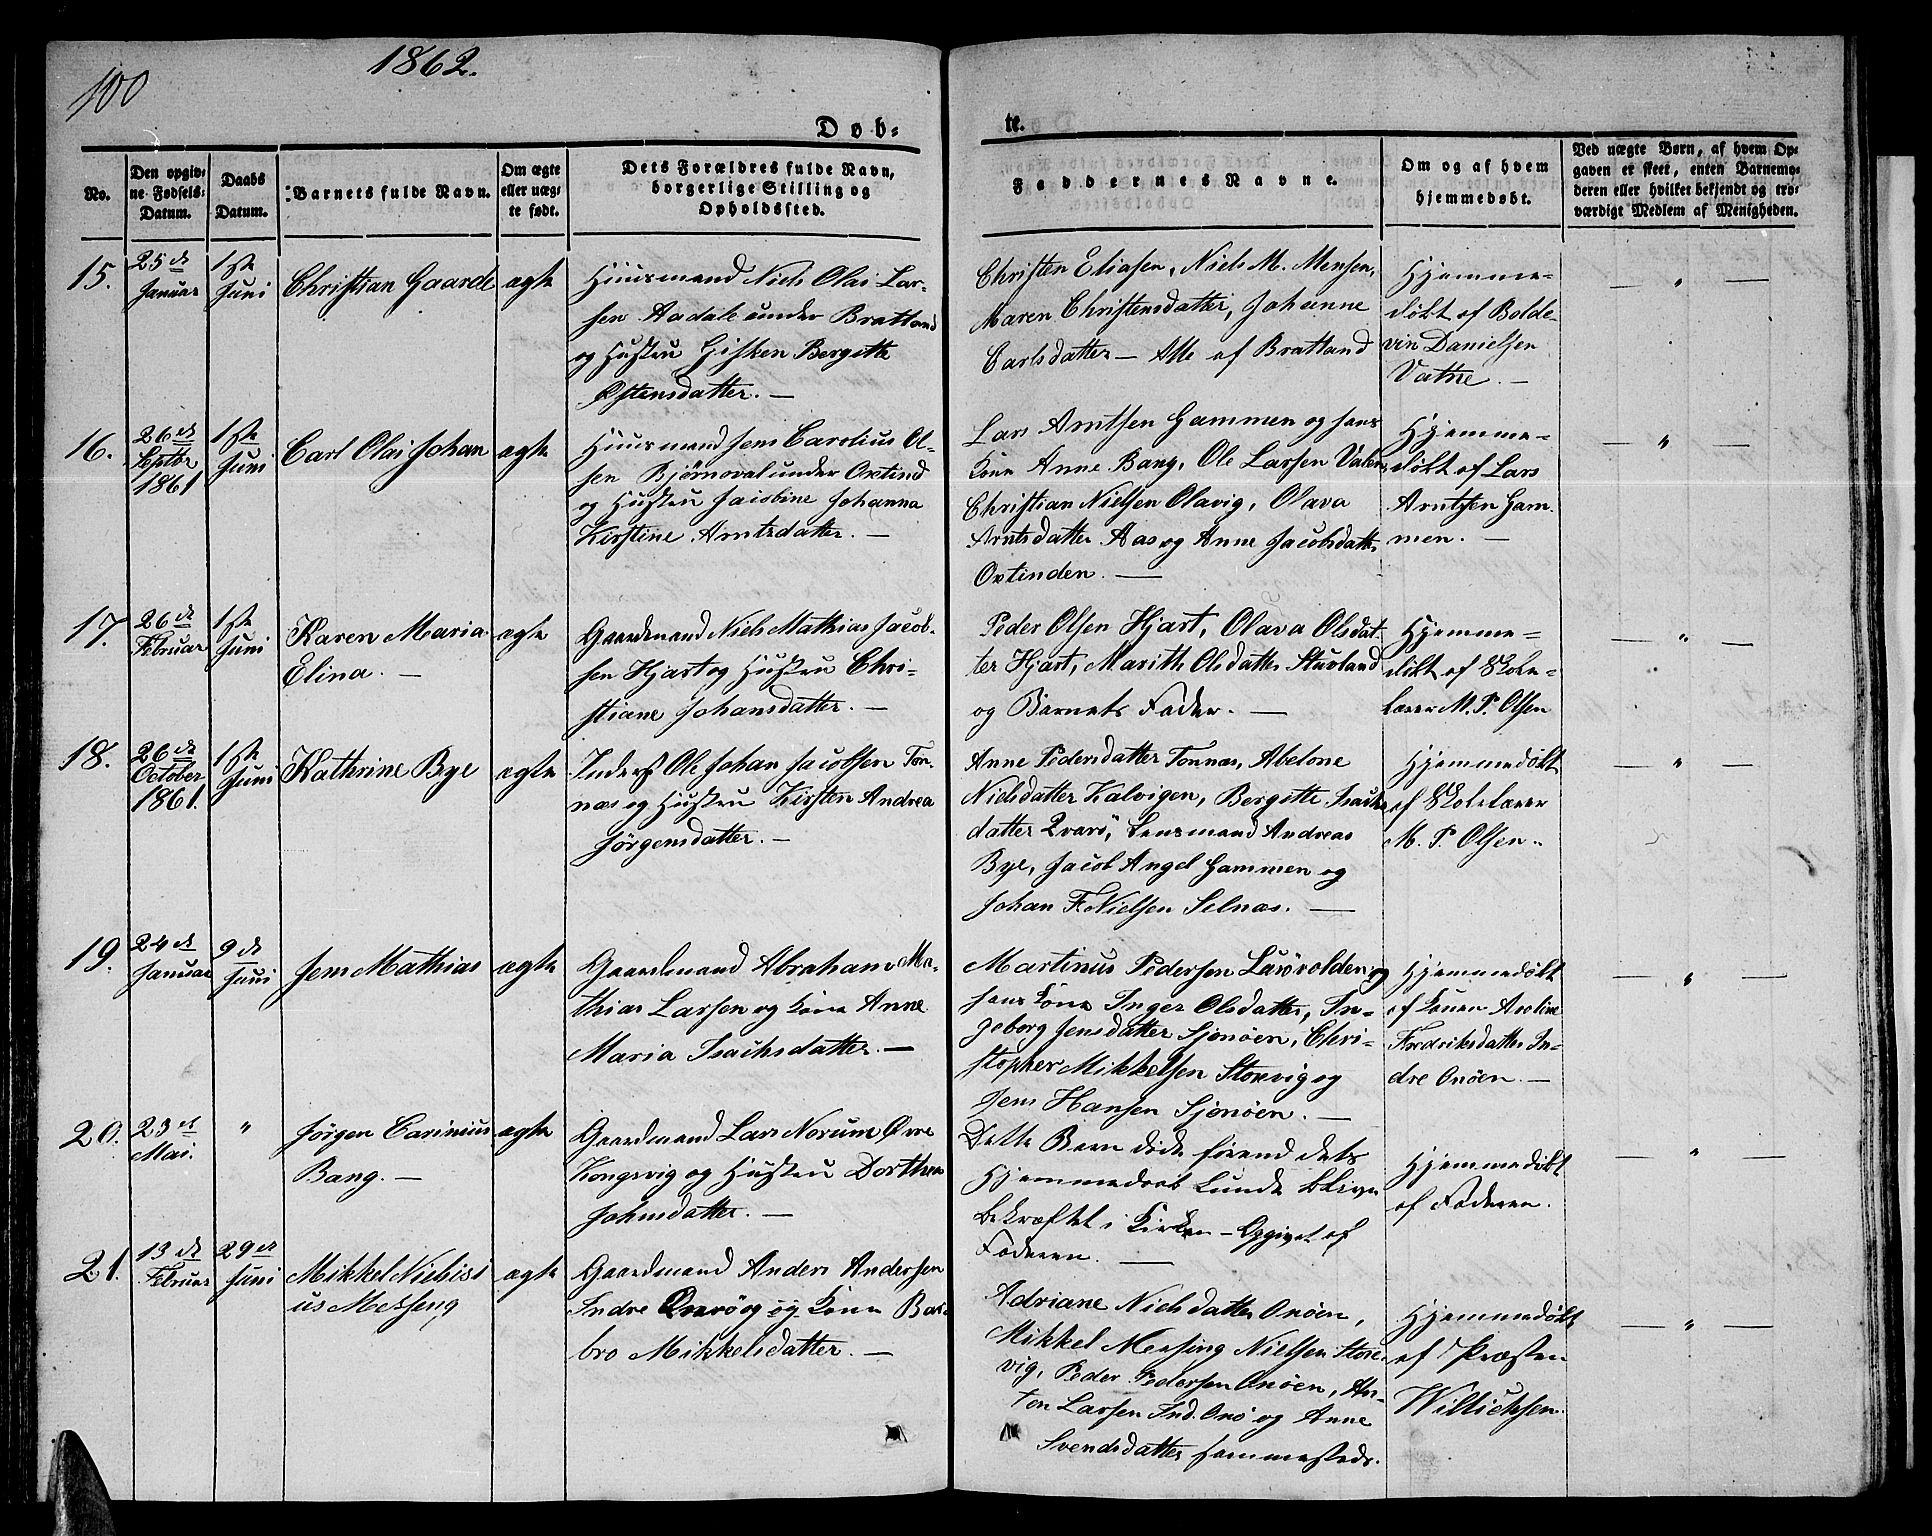 100
1862.
Døb-
te.
No.
Den opgiv-
ne Fødsels-
Datum.
Daabs
Datum.
Barnets fulde Navn.
Om ægte
eller uæg-
te født.
Dets Forældres fulde Navn,
borgerlige Stilling og
Opholdssted.
Faddernes Navne.
Om og af hvem
hjemmedøbt.
Ved uægte Børn, af hvem Op-
gaven er skeet, enten Barnemo-
deren eller hvilket bekjendt og tro-
værdigt Medlem af Menigheden.
15.
25de
Januar
1ste
Juni
Christian Gaarde
ægte
Huusmand Niels Olai Lar-
sen Aadale under Bratland
og Hustru Gisken Bergitte
Østensdatter. —
Christen Eliasen, Niels M. Monsen,
Maren Christensdatter, Johanne
Carlsdatter — Alle af Bratland
Hjemme-
døbt af Bolde-
vin Danielsen
Vatne. —
— " —
16.
26de
Septbr
1861
1ste
Juni
Carl Olai Johan
ægte
Huusmand Jens Carolius Ol-
sen Bjørnoval under Oxtind
og Hustru Jacobine Johanna
Kirstine Arntsdatter. —
Lars Arntsen Gammen og hans
Kone Anne Bang, Ole Larsen Valen,
Christian Nielsen Olavig, Olava
Arntsdatter Aas og Anne Jacobsdatter
Oxtinden. —
Hjemme-
døbt af Lars
Arntsen Gam-
men. —
— " —
17.
26de
Februar
1ste
Juni
Karen Maria
Elina. —
ægte
Gaardmand Niels Mathias Jacob-
sen Hjart og Hustru Chri-
stiane Johansdatter. —
Peder Olsen Hjart, Olava Olsdat-
ter Hjart, Marith Olsdatter Stuvland
og Barnets Fader. —
Hjemme-
døbt af Skole-
lærer M. P. Olsen
— " —
18.
26de
October
1861.
1ste
Juni
Kathrine Bye
ægte
Inderst Ole Johan Jacobsen Ton-
næs og Hustru Kirsten Andrea
Jørgensdatter. —
Anne Pedersdatter Tonnæs, Abelone
Nielsdatter Kalvigen, Bergitte Isachs-
datter Qvarö, Lensmand Andreas
Bye, Jacob Angel Gammen og
Johan F. Nielsen Selnæs. —
Hjemmedøbt
af Skolelærer
M. P. Olsen.
— " —
19.
24de
Januar
9de
Juni
Jens Mathias
ægte
Gaardmand Abraham Ma-
thias Larsen og Kone Anne
Maria Isachsdatter. —
Martinus Pedersen Lurövolden og
hans Kone Inger Olsdatter, In-
geborg Jensdatter Sjonöen, Chri-
stopher Mikkelsen Storvig og
Jens Hansen Sjonöen. —
Hjemmedøbt
af Konen Aroline
Fredriksdatter In-
dre Onöen. —
— " —
20.
23de
Mai.
"
Jørgen Carinius
Bang. —
ægte
Gaardmand Lars Norum Øvre
Kongsvig og Hustru Dorthea
Johnsdatter. —
Dette Barn døde førend dets
Hjemmedaab kunde blive
bekræftet i Kirken — Opgivet af
Faderen. —
Hjemmedøbt
af Faderen.
— " —
21.
13de
Februar
29de
Juni
Mikkel Nielsisi
us Messeng
ægte
Gaardmand Anders Andersen
Indre Qvarö og Kone Bar-
bro Mikkelsdatter. —
Adriane Nielsdatter Onöen,
Mikkel Messing Nielsen Store-
vig, Peder Pedersen Onöen, An-
ton Larsen Ind. Onö og Anne
Svendsdatter sammesteds.
Hjemmedøbt
af Præsten
Willichsen.
— " —